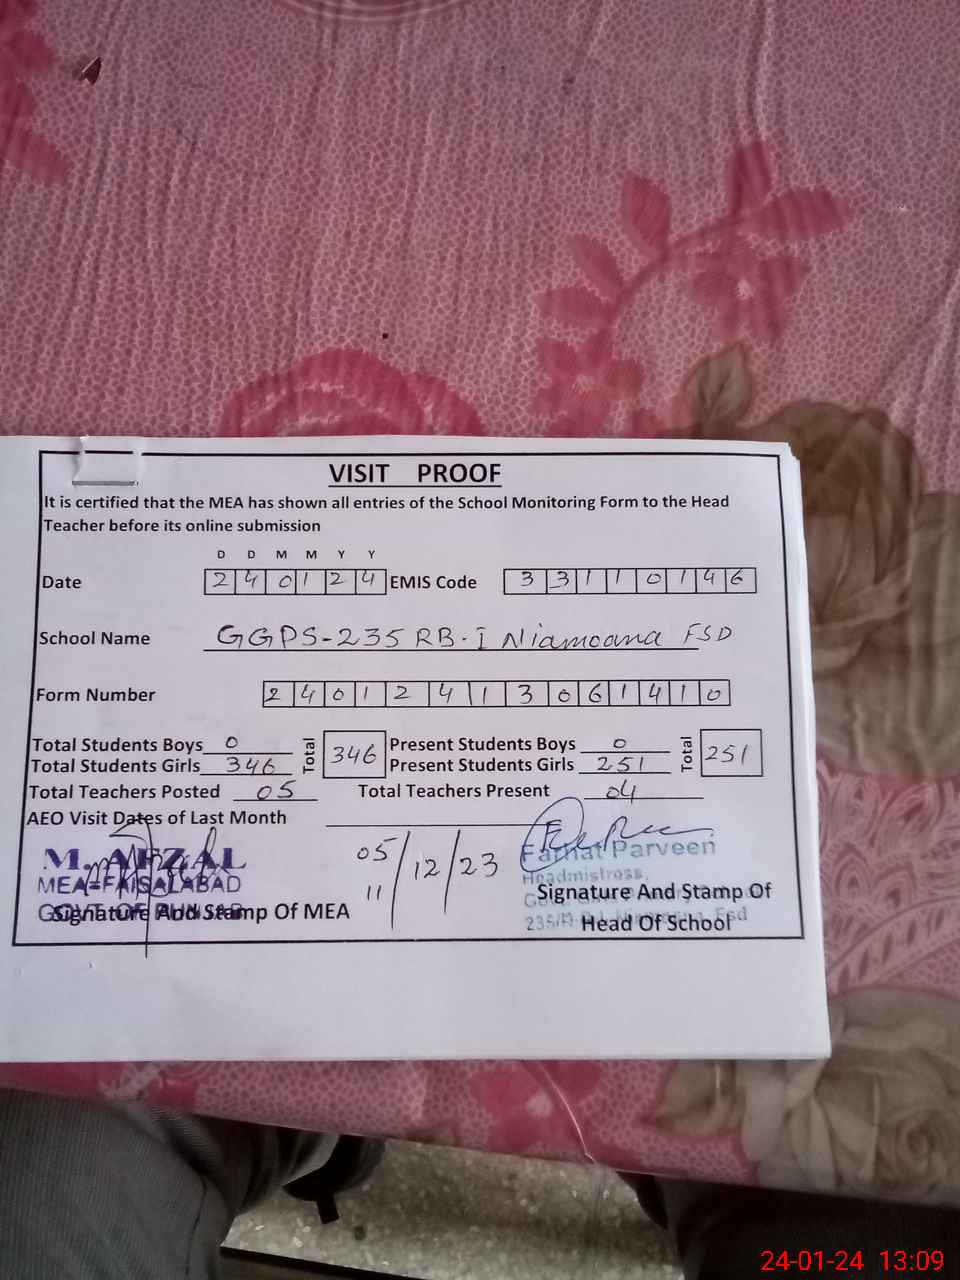 VISIT PROOF
It is certified that the MEA has shown all entries of the School Monitoring Form to the Head
Teacher before its online submission
D D M M Y Y
Date 2 4 0 1 2 4 EMIS Code 3 3 1 1 0 1 4 6
School Name GGPS-235 RB-I Niamoana FSD
Form Number 2 4 0 1 2 4 1 3 0 6 1 4 1 0
Total Students Boys 0 Total 346 Present Students Boys 0 Total 251
Total Students Girls 346 Present Students Girls 251
Total Teachers Posted 05 Total Teachers Present 04
AEO Visit Dates of Last Month
05/12/23
11
M. AFZAL
MEA-FAISALABAD
GOVT. OF PUNJAB
Signature And Stamp Of MEA
Farhat Parveen
Headmistress,
Govt. Girls Primary School
235/R.B-I, Niamoana, Fsd
Signature And Stamp Of
Head Of School
24-01-24 13:09